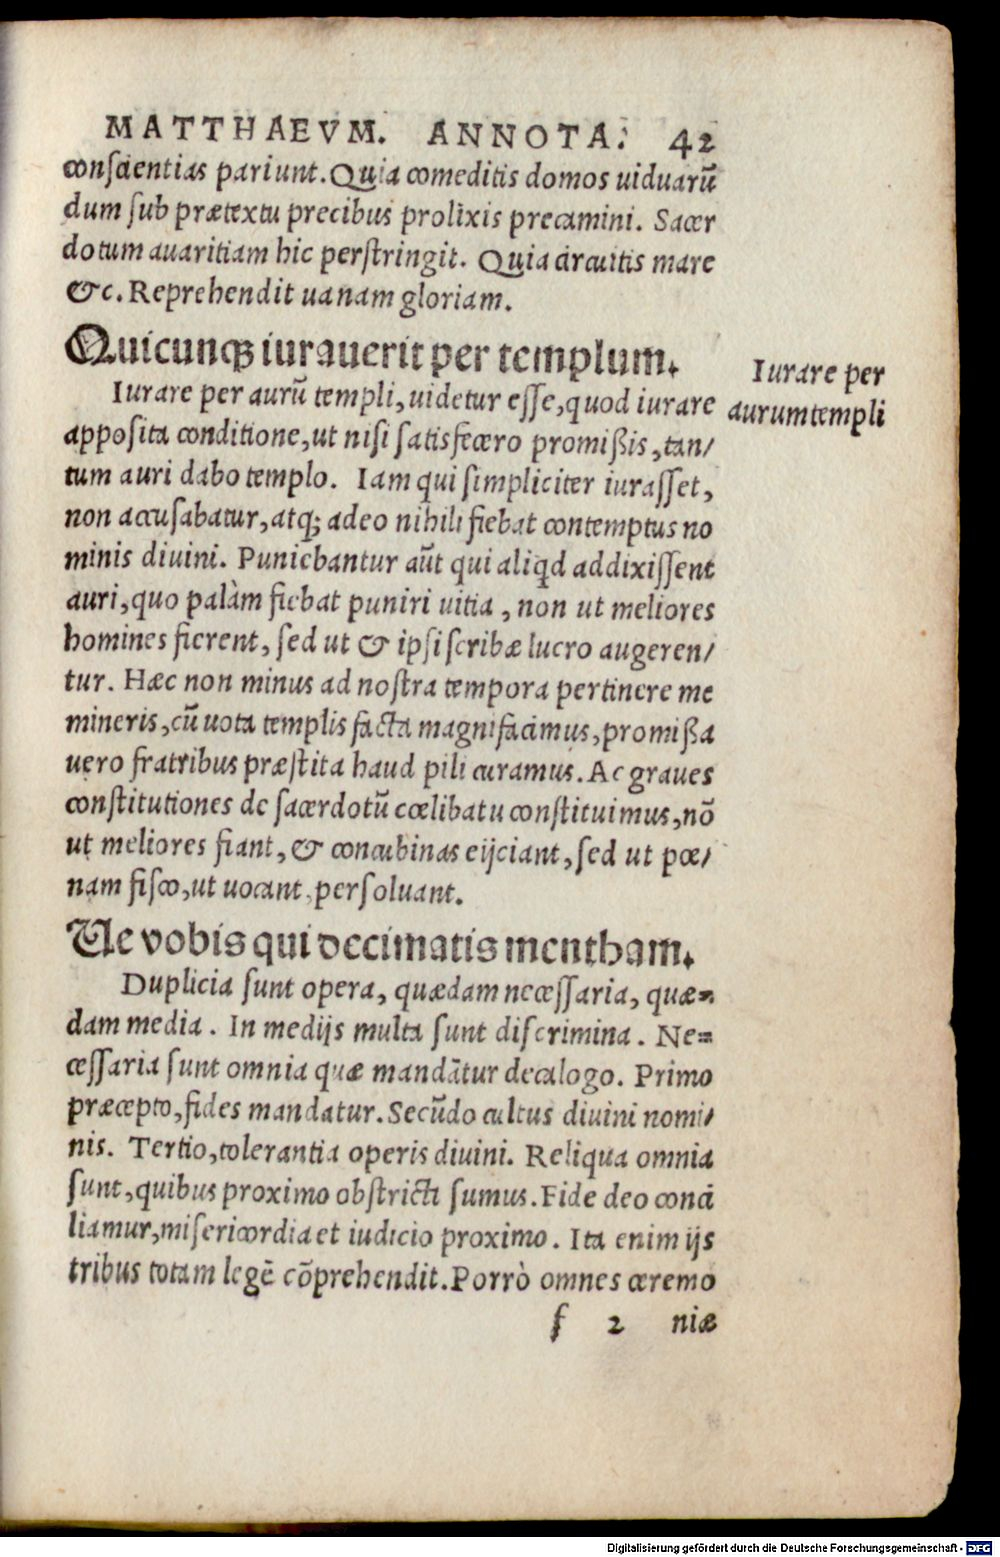 MATTHAEVM. ANNOTA: 42
conscientias pariunt. Quia comeditis domos uiduarũ
dum sub prætextu precibus prolixis precamini. Sacer
dotum auaritiam hic perstringit. Quia circuitis mare
&c. Reprehendit uanam gloriam.
Quicunqꝫ iurauerit per templum.
Iurare per
aurum templi
Iurare per aurũ templi, uidetur esse, quod iurare
apposita conditione, ut nisi satisfecero promißis, tan/
tum auri dabo templo. Iam qui simpliciter iurasset,
non accusabatur, atqꝫ adeo nihili fiebat contemptus no
minis diuini. Puniebantur aũt qui aliqd addixissent
auri, quo palàm fiebat puniri uitia, non ut meliores
homines fierent, sed ut & ipsi scribæ lucro augeren/
tur. Hæc non minus ad nostra tempora pertinere me
mineris, cũ uota templis facta magnifacimus, promißa
uero fratribus præstita haud pili curamus. Ac graues
constitutiones de sacerdotũ cœlibatu constituimus, nõ
ut meliores fiant, & concubinas eijciant, sed ut pœ/
nam fisco, ut uocant, persoluant.
Ue vobis qui decimatis mentham.
Duplicia sunt opera, quædam necessaria, quæ=
dam media. In medijs multa sunt discrimina. Ne=
cessaria sunt omnia quæ mandãtur decalogo. Primo
præcepto, fides mandatur. Secũdo cultus diuini nomi/
nis. Tertio, tolerantia operis diuini. Reliqua omnia
sunt, quibus proximo obstricti sumus. Fide deo conci
liamur, misericordia et iudicio proximo. Ita enim ijs
tribus totam legẽ cõprehendit. Porrò omnes ceremo
f 2 niæ
Digitalisierung gefördert durch die Deutsche Forschungsgemeinschaft - DFG